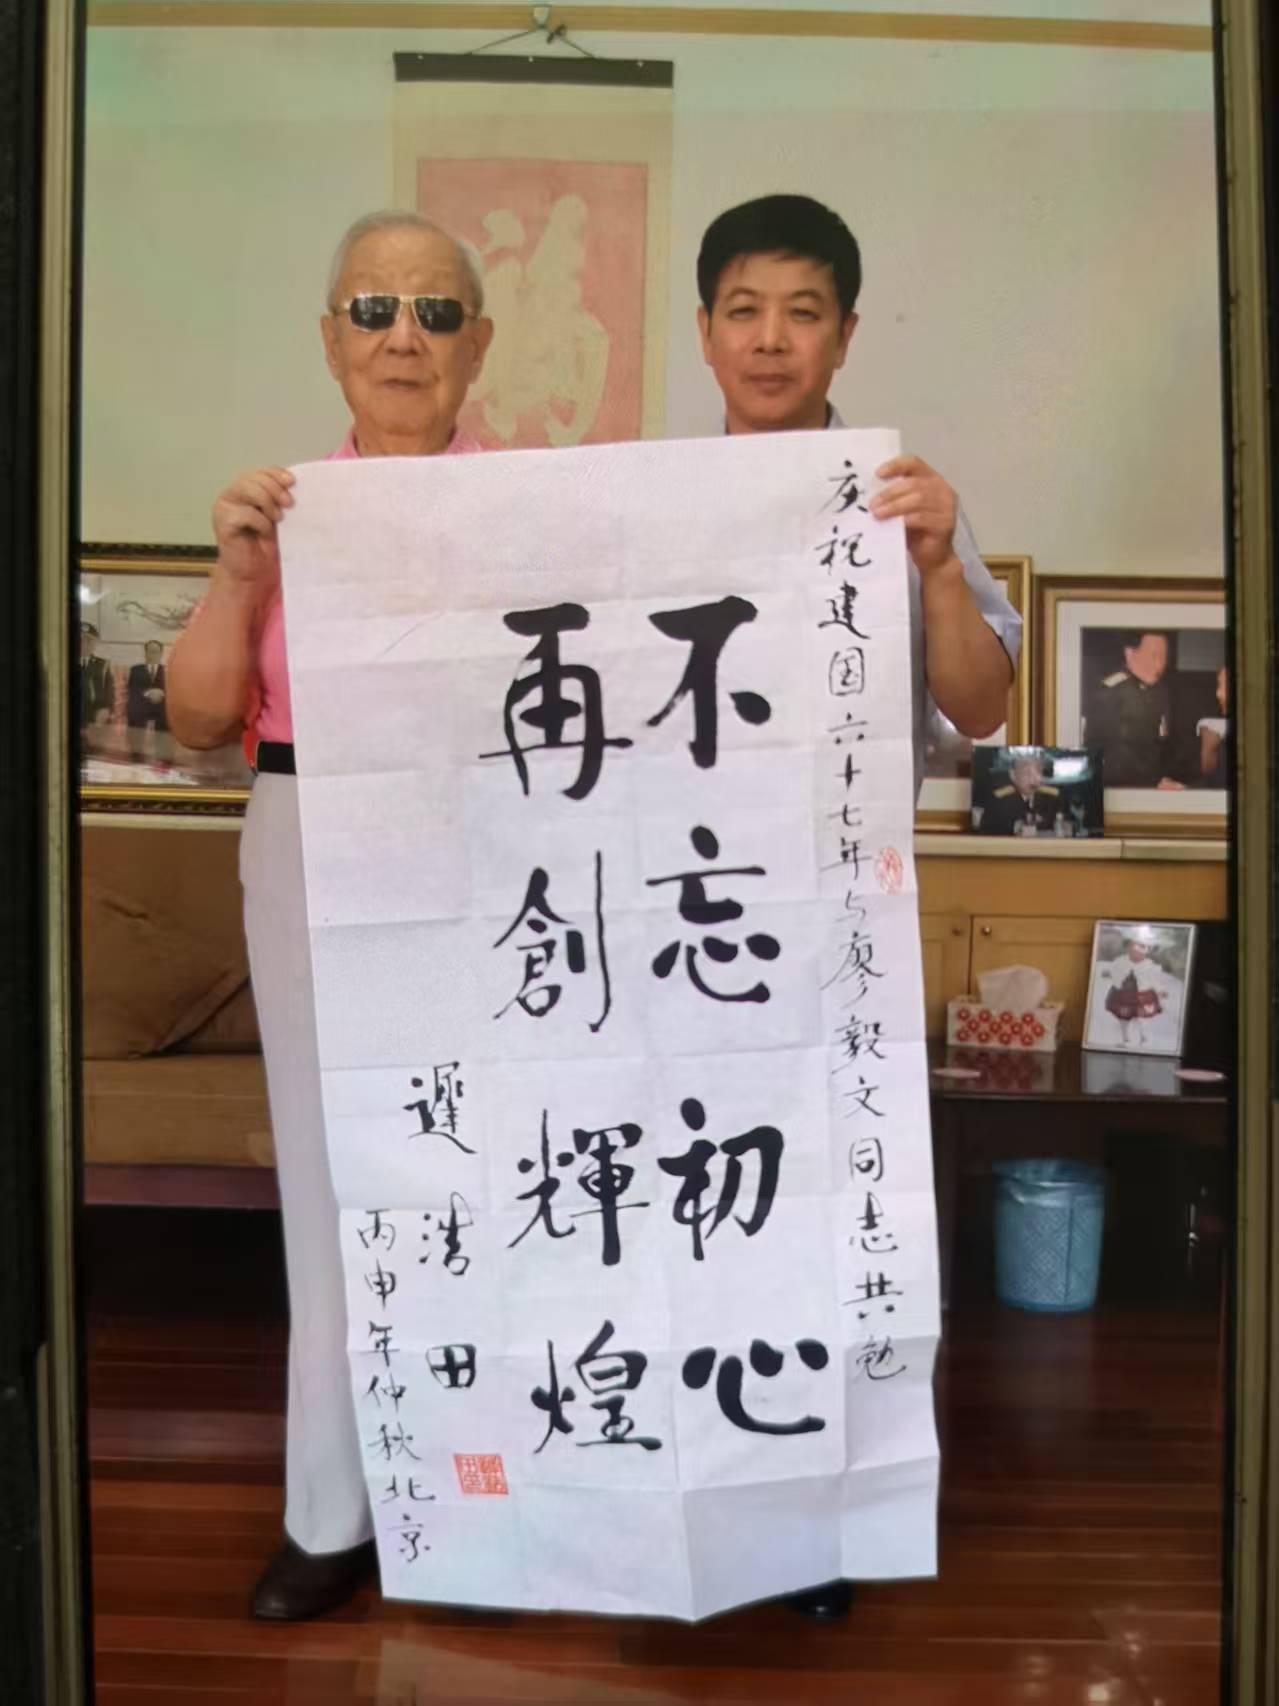 庆祝建国六十七年与廖毅文同志共勉
不忘初心
再創輝煌
遲浩田
丙申年仲秋北京
福